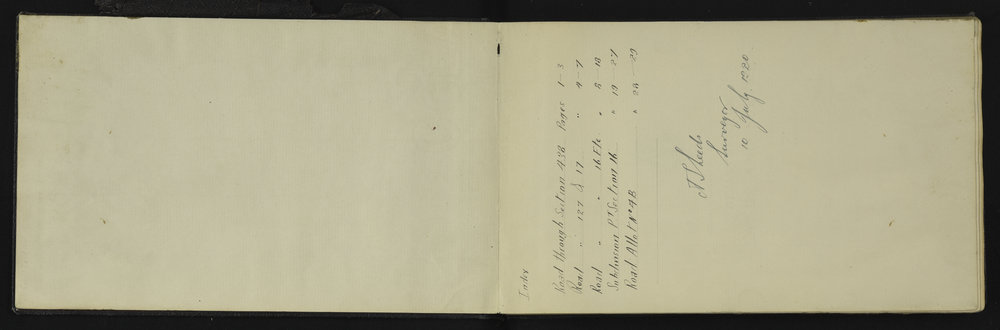 Index
Road through Section 43B Pages 1-3
Road " 127 & 17 " 4-7
Road " " 16 Etc " 8-18
Subdivision Pt Section 16 " 19-27
Road Allot No 4B " 28-29
Surveyor
10 July 1920